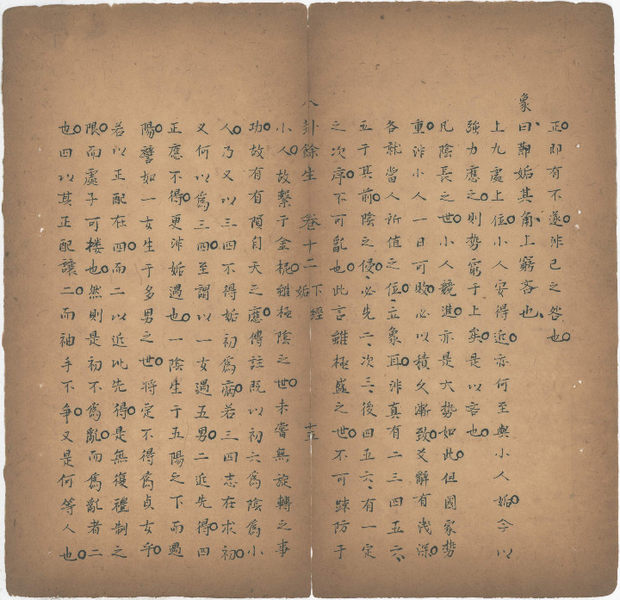 正即有不遂非己之咎也
象曰即姤其角上窮吝也
上九處上位小人安得近亦何至與小人姤今以
強力應之則勢窮于上矣是以吝也
凡陰長之世小人競進亦是大勢如此但國家勢
重非小人一日可敗必以積久漸致爻辭有淺深
各就當人所值之位立象耳非真有二三四五六
五于其前陰之侵必先二次三後四五六有一定
之次序不可亂也此言雖極盛之世不可疎防于
八卦餘生 卷十二 下經 姤 十五
小人故繫于金柅雖極陰之世未嘗無旋轉之事
功故有有隕自天之應傳註既以初六為陰為小
人乃又以三四不得姤初為病若三四志在求初
又何以為三四至謂以一女遇五男二近先得四
正應不得更非姤遇也一陰生于五陽之下而遇
陽譬如一女生于多男之世將定不得為貞女乎
若以正配在四而二以近此先得是無復禮制之
限而處子可摟也然則是初不為亂而為亂者二
也四以其正配讓二而袖手不爭又是何等人也